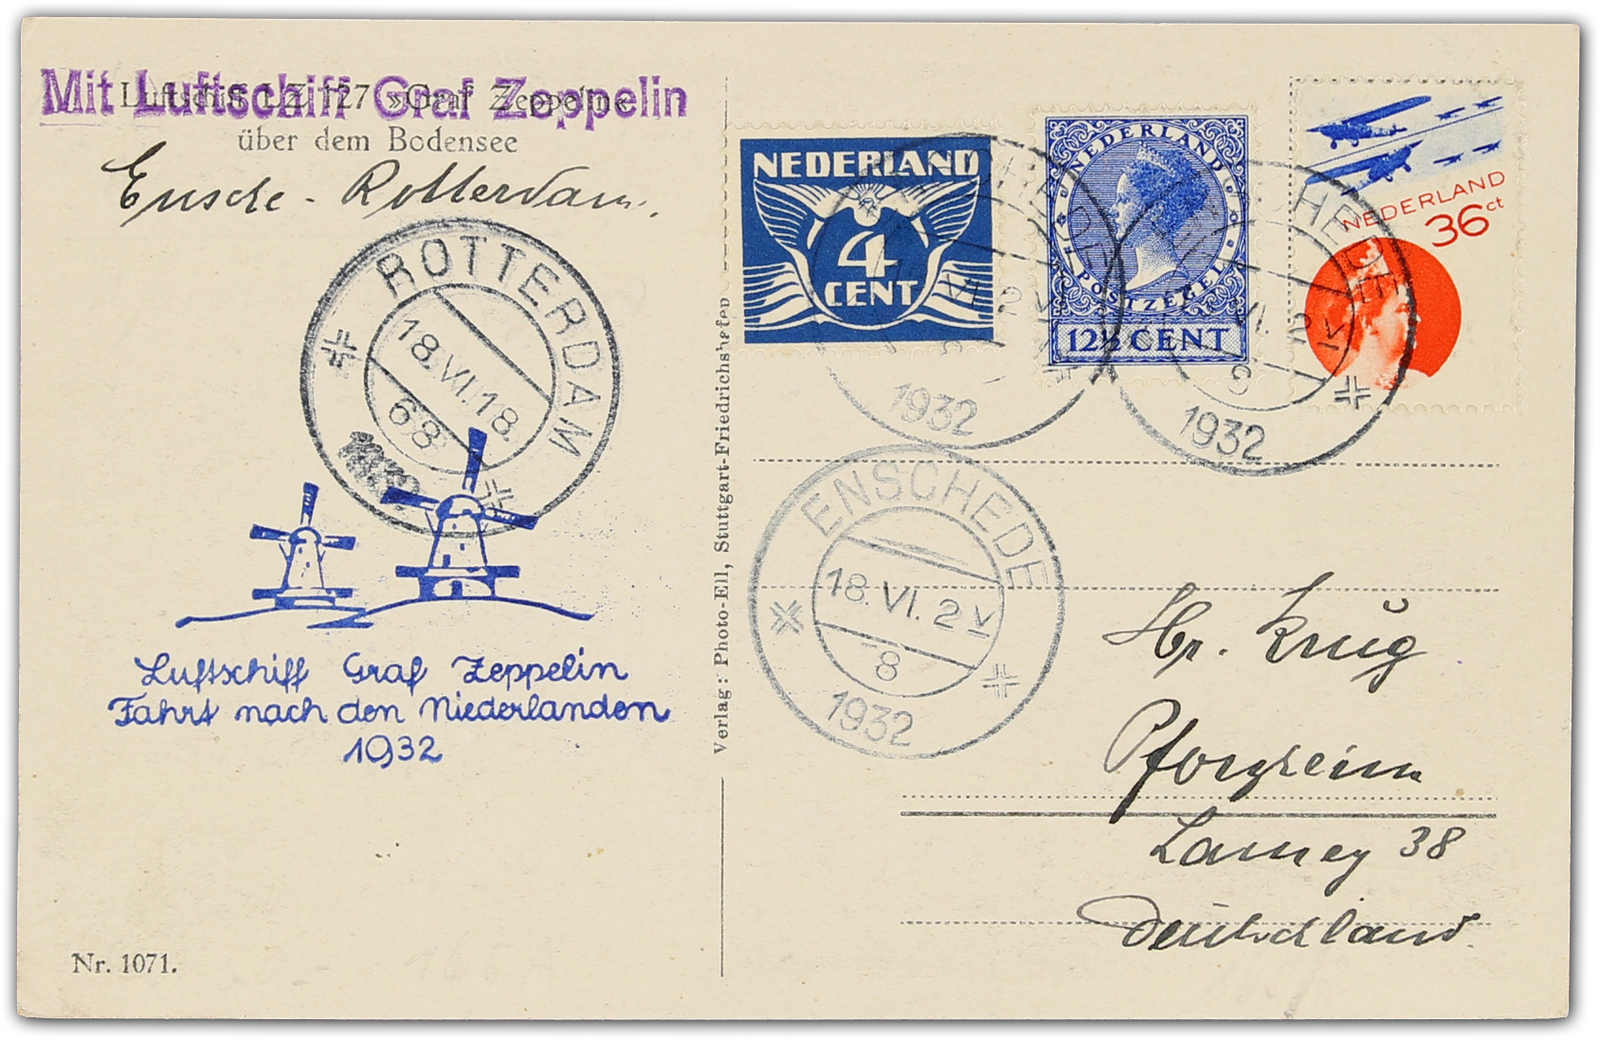 Mit Luftschiff Graf Zeppelin
Luftschiff L. Z. 127 »Graf Zeppelin«
über dem Bodensee
Ensche - Rotterdam.
ROTTERDAM
18.VI.18.
68
1932
Luftschiff Graf Zeppelin
Fahrt nach den Niederlanden
1932
Nr. 1071.
Verlag: Photo-Ell, Stuttgart-Friedrichshafen
NEDERLAND
4
CENT
NEDERLAND
POSTZEGEL
12½ CENT
NEDERLAND
36 ct
ENSCHEDE
VI. 2 V
8
1932
ENSCHEDE
VI. 2 V
8
1932
ENSCHEDE
18.VI. 2 V
8
1932
Hr. Krug
Pforzheim
Lamey 38
Deutschland.